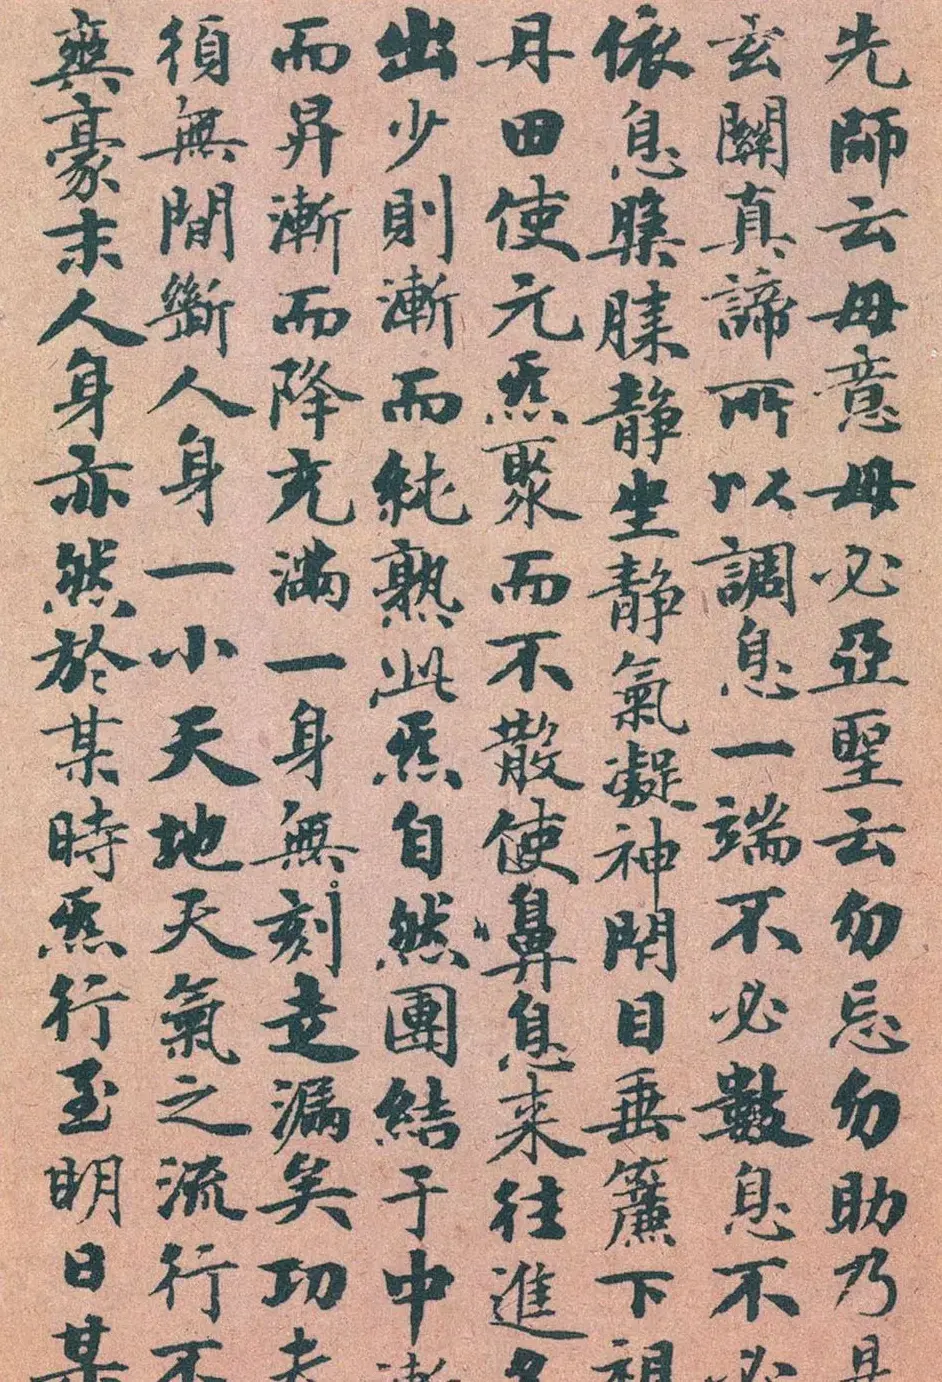 先師云毋意毋必亞聖云勿忘勿助乃
玄關真諦所以調息一端不必數息不必
依息靜坐靜氣凝神閉目垂簾下視
丹田使元炁聚而不散使鼻息来往進多
出少則漸而純熟此炁自然團結于中漸
而昇漸而降充滿一身無刻走漏矣功夫
須無間斷人身一小天地天氣之流行不
爽豪末人身亦然於某時炁行至明日某